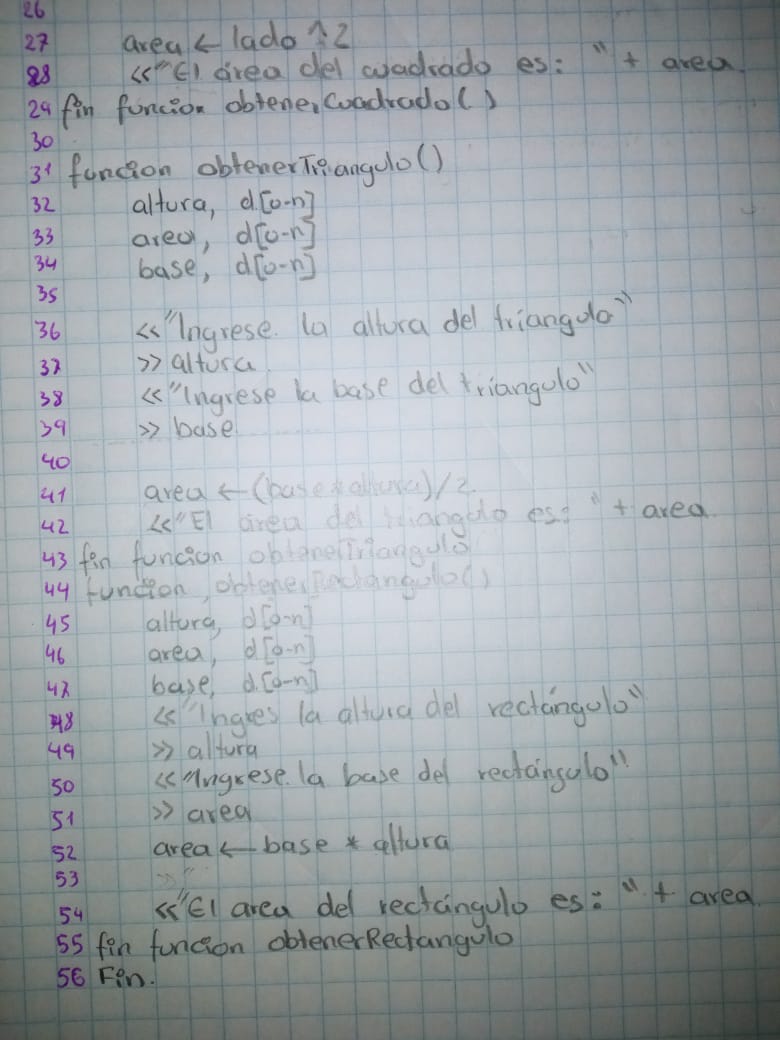 26
27 area ← lado ↑2
28 <<"El área del cuadrado es: " + area
29 fin funcion obtenerCuadrado()
30
31 funcion obtenerTriangulo()
32 altura, d[0-n]
33 area, d[0-n]
34 base, d[0-n]
35
36 <<"Ingrese la altura del triangulo"
37 >> altura
38 <<"Ingrese la base del triangulo"
39 >> base
40
41 area ← (base * altura)/2
42 <<"El área del triangulo es: " + area
43 fin funcion obtenerTriangulo
44 funcion obtenerRectangulo()
45 altura, d[0-n]
46 area, d[0-n]
47 base, d.[0-n]
48 <<"Ingres la altura del rectángulo"
49 >> altura
50 <<"Ingrese la base del rectángulo"
51 >> area
52 area ← base * altura
53
54 <<"El area del rectángulo es: " + area
55 fin funcion obtenerRectangulo
56 Fin.